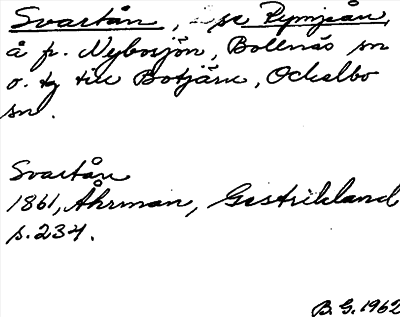 Svartån, se Pymjeån,
å fr. Nybosjön, Bollnäs sn
o. tg till Botjärn, Ockelbo
sn.
Svartån
1861, Åhrman, Gestrikland
s. 234.
B. G. 1962